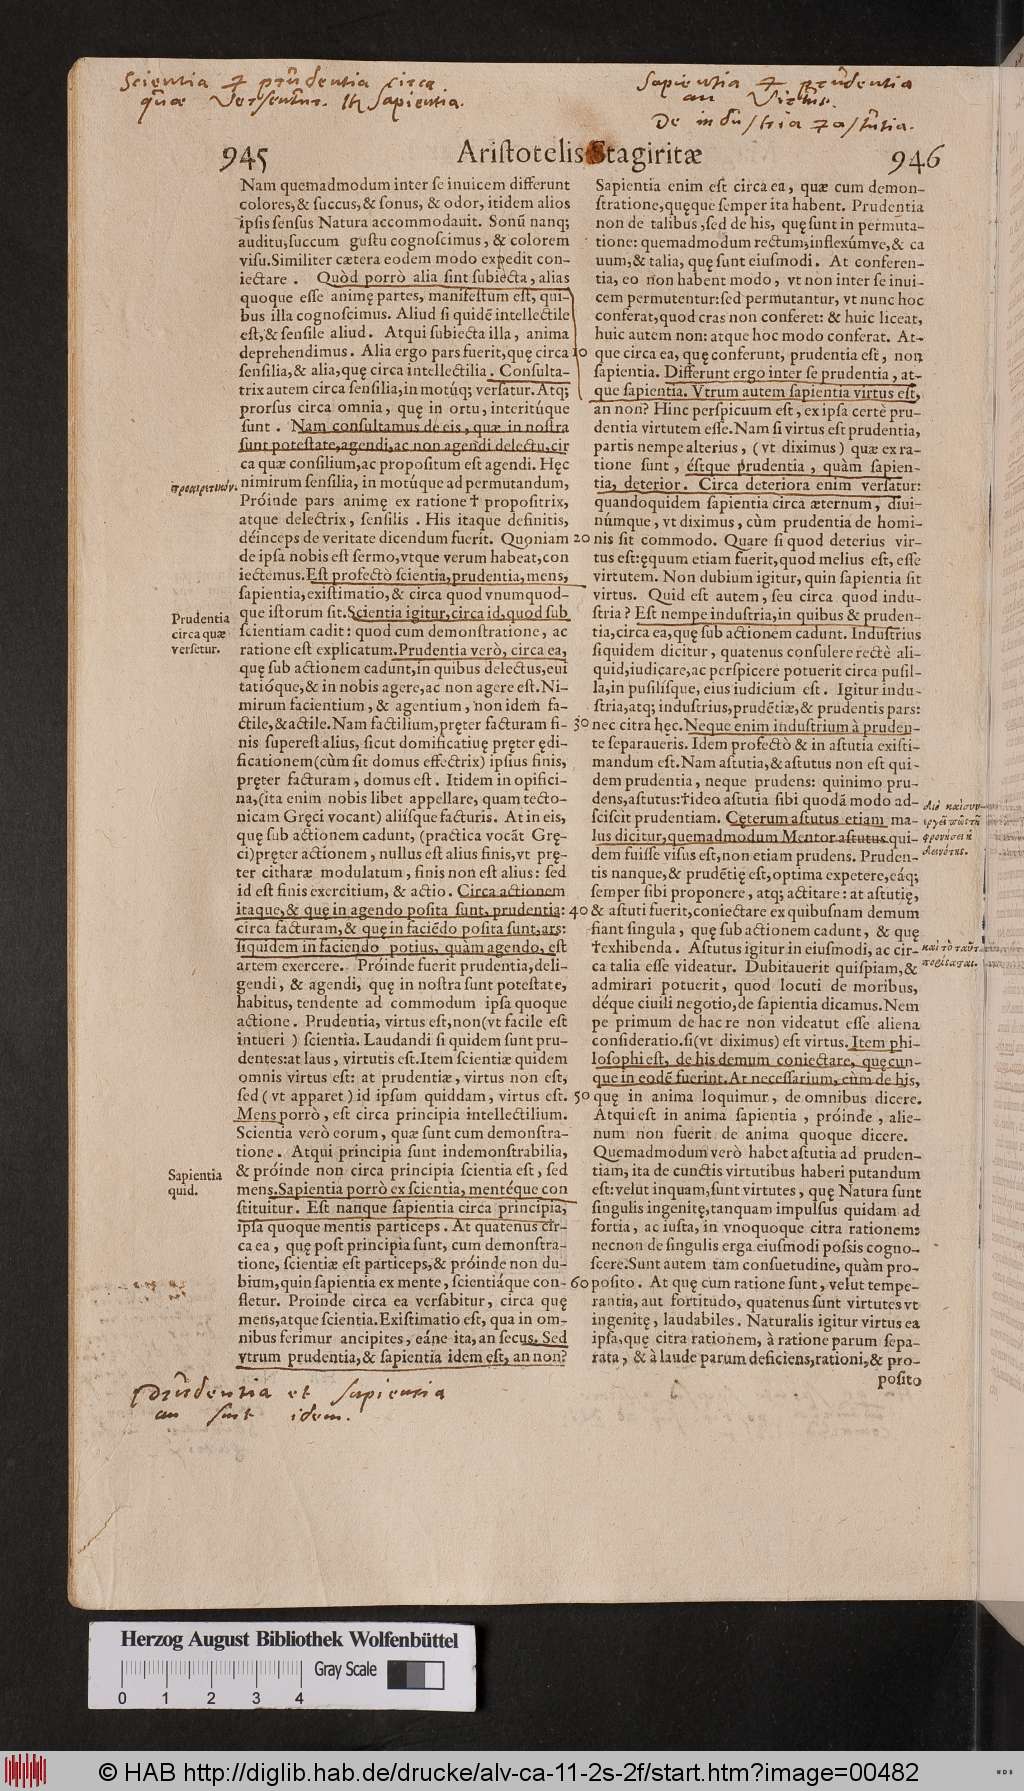 Scientia & prudentia circa
quae versentur. It. Sapientia.
Sapientia & prudentia
an virtus.
De industria & astutia.
945
Aristotelis Stagiritæ
946
Nam quemadmodum inter se inuicem differunt
colores,& succus,& sonus, & odor, itidem alios
ipsis sensus Natura accommodauit. Sonũ nanq;
auditu,succum gustu cognoscimus, & colorem
visu.Similiter cætera eodem modo expedit con-
iectare . Quòd porrò alia sint subiecta, alias
quoque esse animę partes, manifestum est, qui-
bus illa cognoscimus. Aliud si quidẽ intellectile
est,& sensile aliud. Atqui subiecta illa , anima
deprehendimus. Alia ergo pars fuerit,quę circa 10
sensilia,& alia,quę circa intellectilia . Consulta-
trix autem circa sensilia,in motúq; versatur.Atq;
prorsus circa omnia, quę in ortu, interitúque
sunt . Nam consultamus de eis, quæ in nostra
sunt potestate,agendi,ac non agendi delectu,cir
ca quæ consilium,ac propositum est agendi. Hęc
προαιρετικόν.
nimirum sensilia, in motúque ad permutandum,
Próinde pars animę ex ratione † propositrix,
atque delectrix, sensilis . His itaque definitis,
déinceps de veritate dicendum fuerit. Quoniam 20
de ipsa nobis est sermo,vtque verum habeat,con
iectemus.Est profectò scientia,prudentia,mens,
sapientia,existimatio,& circa quod vnumquod-
que istorum sit.Scientia igitur,circa id,quod sub
Prudentia
circa quæ
versetur.
scientiam cadit: quod cum demonstratione, ac
ratione est explicatum.Prudentia verò, circa ea,
quę sub actionem cadunt,in quibus delectus,eui
tatióque,& in nobis agere,ac non agere est.Ni-
mirum facientium, & agentium, non idem fa-
ctile,&actile.Nam factilium,pręter facturam fi- 30
nis superest alius, sicut domificatiuę pręter ędi-
ficationem(cùm sit domus effectrix) ipsius finis,
pręter facturam, domus est. Itidem in opifici-
na,(ita enim nobis libet appellare, quam tecto-
nicam Gręci vocant) aliísque facturis. At in eis,
quę sub actionem cadunt, (practica vocãt Grę-
ci)pręter actionem, nullus est alius finis,vt prę-
ter citharæ modulatum, finis non est alius: sed
id est finis exercitium, & actio. Circa actionem
itaque,& quę in agendo posita sunt, prudentia: 40
circa facturam,& quę in faciẽdo posita sunt,ars:
siquidem in faciendo potius, quàm agendo, est
artem exercere. Próinde fuerit prudentia,deli-
gendi, & agendi, quę in nostra sunt potestate,
habitus, tendente ad commodum ipsa quoque
actione. Prudentia, virtus est,non(vt facile est
intueri ) scientia. Laudandi si quidem sunt pru-
dentes:at laus, virtutis est.Item scientiæ quidem
omnis virtus est: at prudentiæ, virtus non est,
sed (vt apparet) id ipsum quiddam, virtus est. 50
Mens porrò, est circa principia intellectilium.
Scientia verò eorum, quæ sunt cum demonstra-
tione. Atqui principia sunt indemonstrabilia,
Sapientia
quid.
& próinde non circa principia scientia est, sed
mens.Sapientia porrò ex scientia, mentéque con
stituitur. Est nanque sapientia circa principia,
ipsa quoque mentis particeps. At quatenus cir-
ca ea, quę post principia sunt, cum demonstra-
tione, scientiæ est particeps,& próinde non du-
bium,quin sapientia ex mente, scientiáque con- 60
fletur. Proinde circa ea versabitur, circa quę
mens,atque scientia.Existimatio est, qua in om-
nibus ferimur ancipites, eáne ita, an secus. Sed
vtrum prudentia,& sapientia idem est, an non?
Prudentia et sapientia
an sint idem.
Sapientia enim est circa ea, quæ cum demon-
stratione,quęque semper ita habent. Prudentia
non de talibus,sed de his, quę sunt in permuta-
tione: quemadmodum rectum,inflexúmve,& ca
uum,& talia, quę sunt eiusmodi. At conferen-
tia, eo non habent modo, vt non inter se inui-
cem permutentur:sed permutantur, vt nunc hoc
conferat,quod cras non conferet: & huic liceat,
huic autem non: atque hoc modo conferat. At-
que circa ea, quę conferunt, prudentia est, non
sapientia. Differunt ergo inter se prudentia, at-
que sapientia. Vtrum autem sapientia virtus est,
an non? Hinc perspicuum est, ex ipsa certè pru-
dentia virtutem esse.Nam si virtus est prudentia,
partis nempe alterius, (vt diximus) quæ ex ra-
tione sunt, éstque prudentia, quàm sapien-
tia, deterior. Circa deteriora enim versatur:
quandoquidem sapientia circa æternum, diui-
númque, vt diximus, cùm prudentia de homi-
nis sit commodo. Quare si quod deterius vir-
tus est:ęquum etiam fuerit,quod melius est, esse
virtutem. Non dubium igitur, quin sapientia sit
virtus. Quid est autem, seu circa quod indu-
stria? Est nempe industria,in quibus & pruden-
tia,circa ea,quę sub actionem cadunt. Industrius
siquidem dicitur, quatenus consulere rectè ali-
quid,iudicare,ac perspicere potuerit circa pusil-
la,in pusilísque, eius iudicium est. Igitur indu-
stria,atq; industrius,prudẽtiæ,& prudentis pars:
nec citra hęc.Neque enim industrium à pruden-
te separaueris. Idem profectò & in astutia existi-
mandum est.Nam astutia,& astutus non est qui-
dem prudentia, neque prudens: quinimo pru-
dens,astutus:†ideo astutia sibi quodã modo ad-
sciscit prudentiam. Cęterum astutus etiam ma-
lus dicitur,quemadmodum Mentor astutus qui-
Διὸ καὶ συν-
εργεῖ πῶς τῇ
φρονήσει ἡ
δεινότης.
dem fuisse visus est,non etiam prudens. Pruden-
tis nanque,& prudẽtię est,optima expetere,eáq;
semper sibi proponere, atq; actitare: at astutię,
& astuti fuerit,coniectare ex quibusnam demum
fiant singula, quę sub actionem cadunt, & quę
†exhibenda. Astutus igitur in eiusmodi, ac cir-
ca talia esse videatur. Dubitauerit quispiam,&
admirari potuerit, quod locuti de moribus,
déque ciuili negotio,de sapientia dicamus.Nem
pe primum de hac re non videatur esse aliena
consideratio.si(vt diximus) est virtus.Item phi-
losophi est, de his demum coniectare, quęcun-
que in eodẽ fuerint.At necessarium, cùm de his,
quę in anima loquimur, de omnibus dicere.
Atqui est in anima sapientia, próinde, alie-
num non fuerit de anima quoque dicere.
Quemadmodum verò habet astutia ad pruden-
tiam, ita de cunctis virtutibus haberi putandum
est:velut inquam,sunt virtutes, quę Natura sunt
singulis ingenitę,tanquam impulsus quidam ad
fortia, ac iusta, in vnoquoque citra rationem:
necnon de singulis erga eiusmodi possis cogno-
scere.Sunt autem tam consuetudine, quàm pro-
posito. At quę cum ratione sunt, velut tempe-
rantia, aut fortitudo, quatenus sunt virtutes vt
ingenitę, laudabiles. Naturalis igitur virtus ea
ipsa,quę citra rationem, à ratione parum sepa-
rata, & à laude parum deficiens,rationi,& pro-
posito
Herzog August Bibliothek Wolfenbüttel
Gray Scale
0 1 2 3 4
© HAB http://diglib.hab.de/drucke/alv-ca-11-2s-2f/start.htm?image=00482